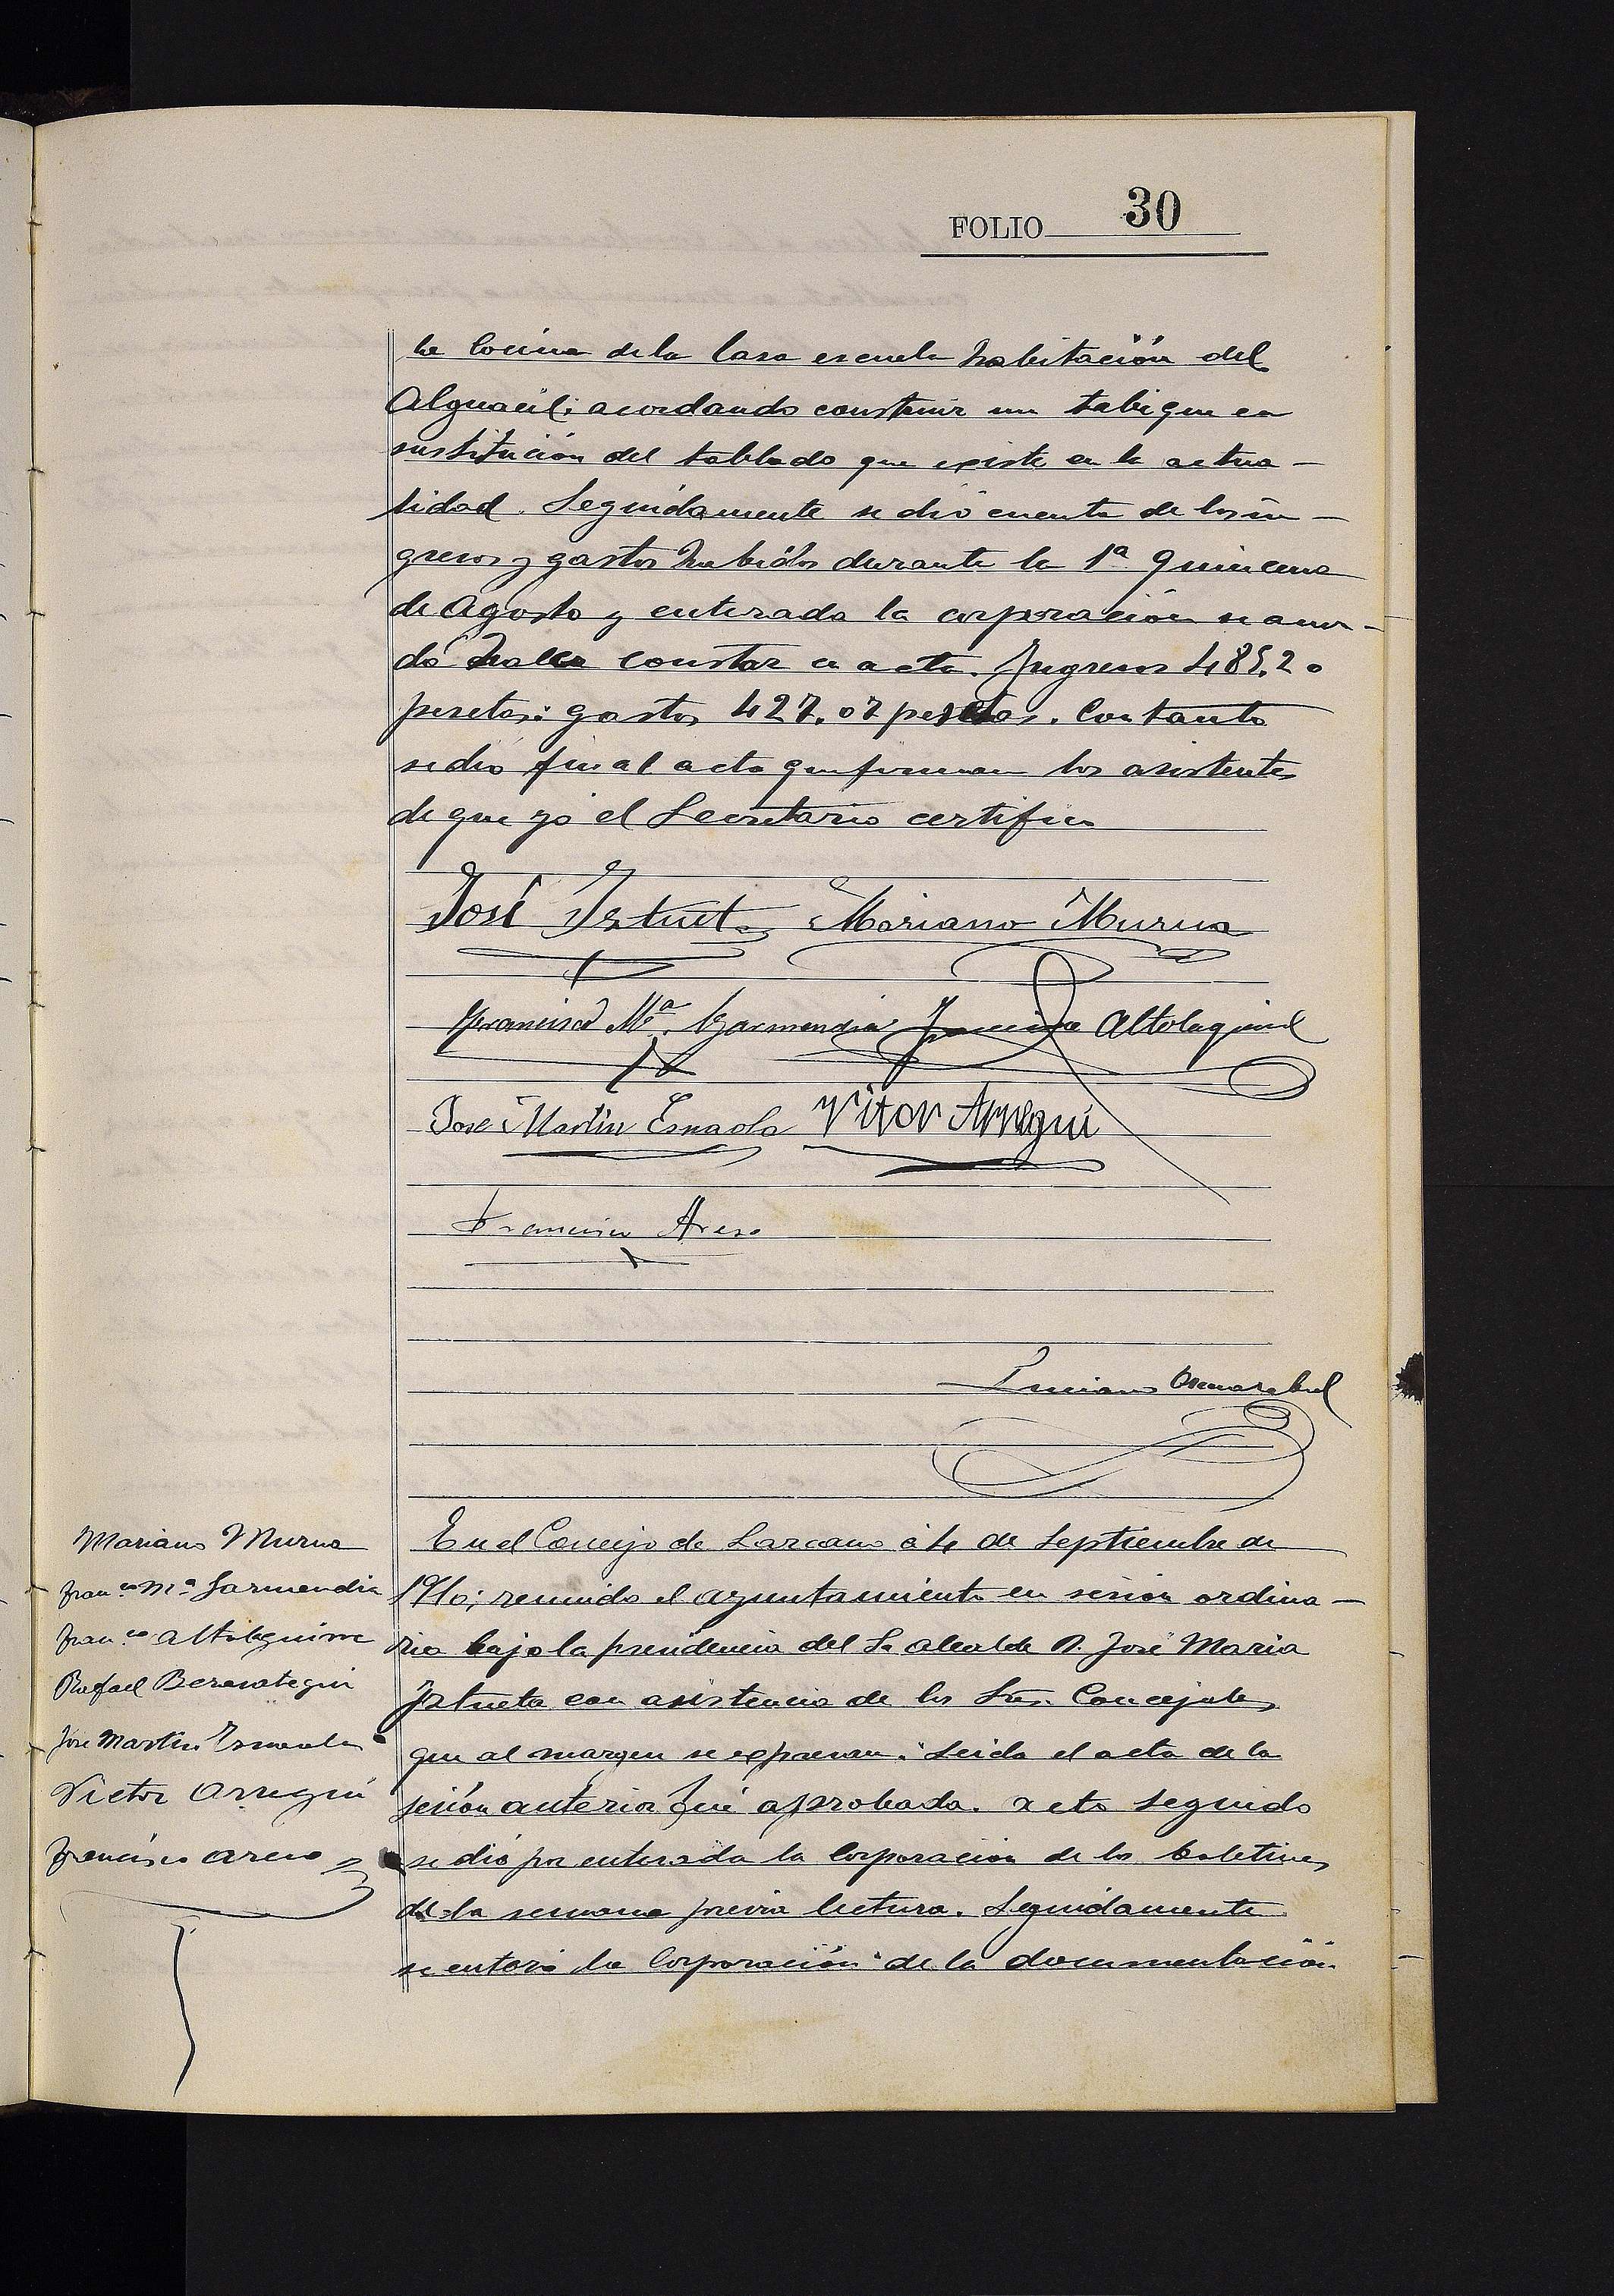 FOLIO 30
la Cocina de la Casa escuela habitación del
Alguacil; acordando construir un tabique en
sustitución del tablado que existe en la actua-
lidad. Seguidamente se dió cuenta de los in-
gresos y gastos habidos durante la 1ª Quincena
de Agosto y enterada la corporación se acor-
dó haca constar en acta. Ingresos 485.20
pesetas: gastos 427.07 pesetas. Con tanto
se dió fin al acto que firman los asistentes
de que yo el Secretario certifico
José Iztueta Mariano Murua
Francisco Mª. Garmendia Francisco Altolaguirre
Jose Martin Esnaola Vitor Arregui
Francisco Areso
Luciano
Mariano Murua
Franco Mª Garmendia
Franco Altolaguirre
Rafael Berasategui
Jose Martin Esnaola
Victor Arregui
Francisco Areso
En el Concejo de Lazcano á 4 de Septiembre de
1910; reunido el ayuntamiento en sesión ordina-
ria bajo la presidencia del Sr. alcalde D. José Maria
Iztueta con asistencia de los Sres. Concejales
que al margen se expresan: Leida el acta de la
sesión anterior fué aprobada. Acto seguido
se dió por enterada la Corporación de los boletines
de la semana previa lectura. Seguidamente
se enteró la Corporación de la documentación